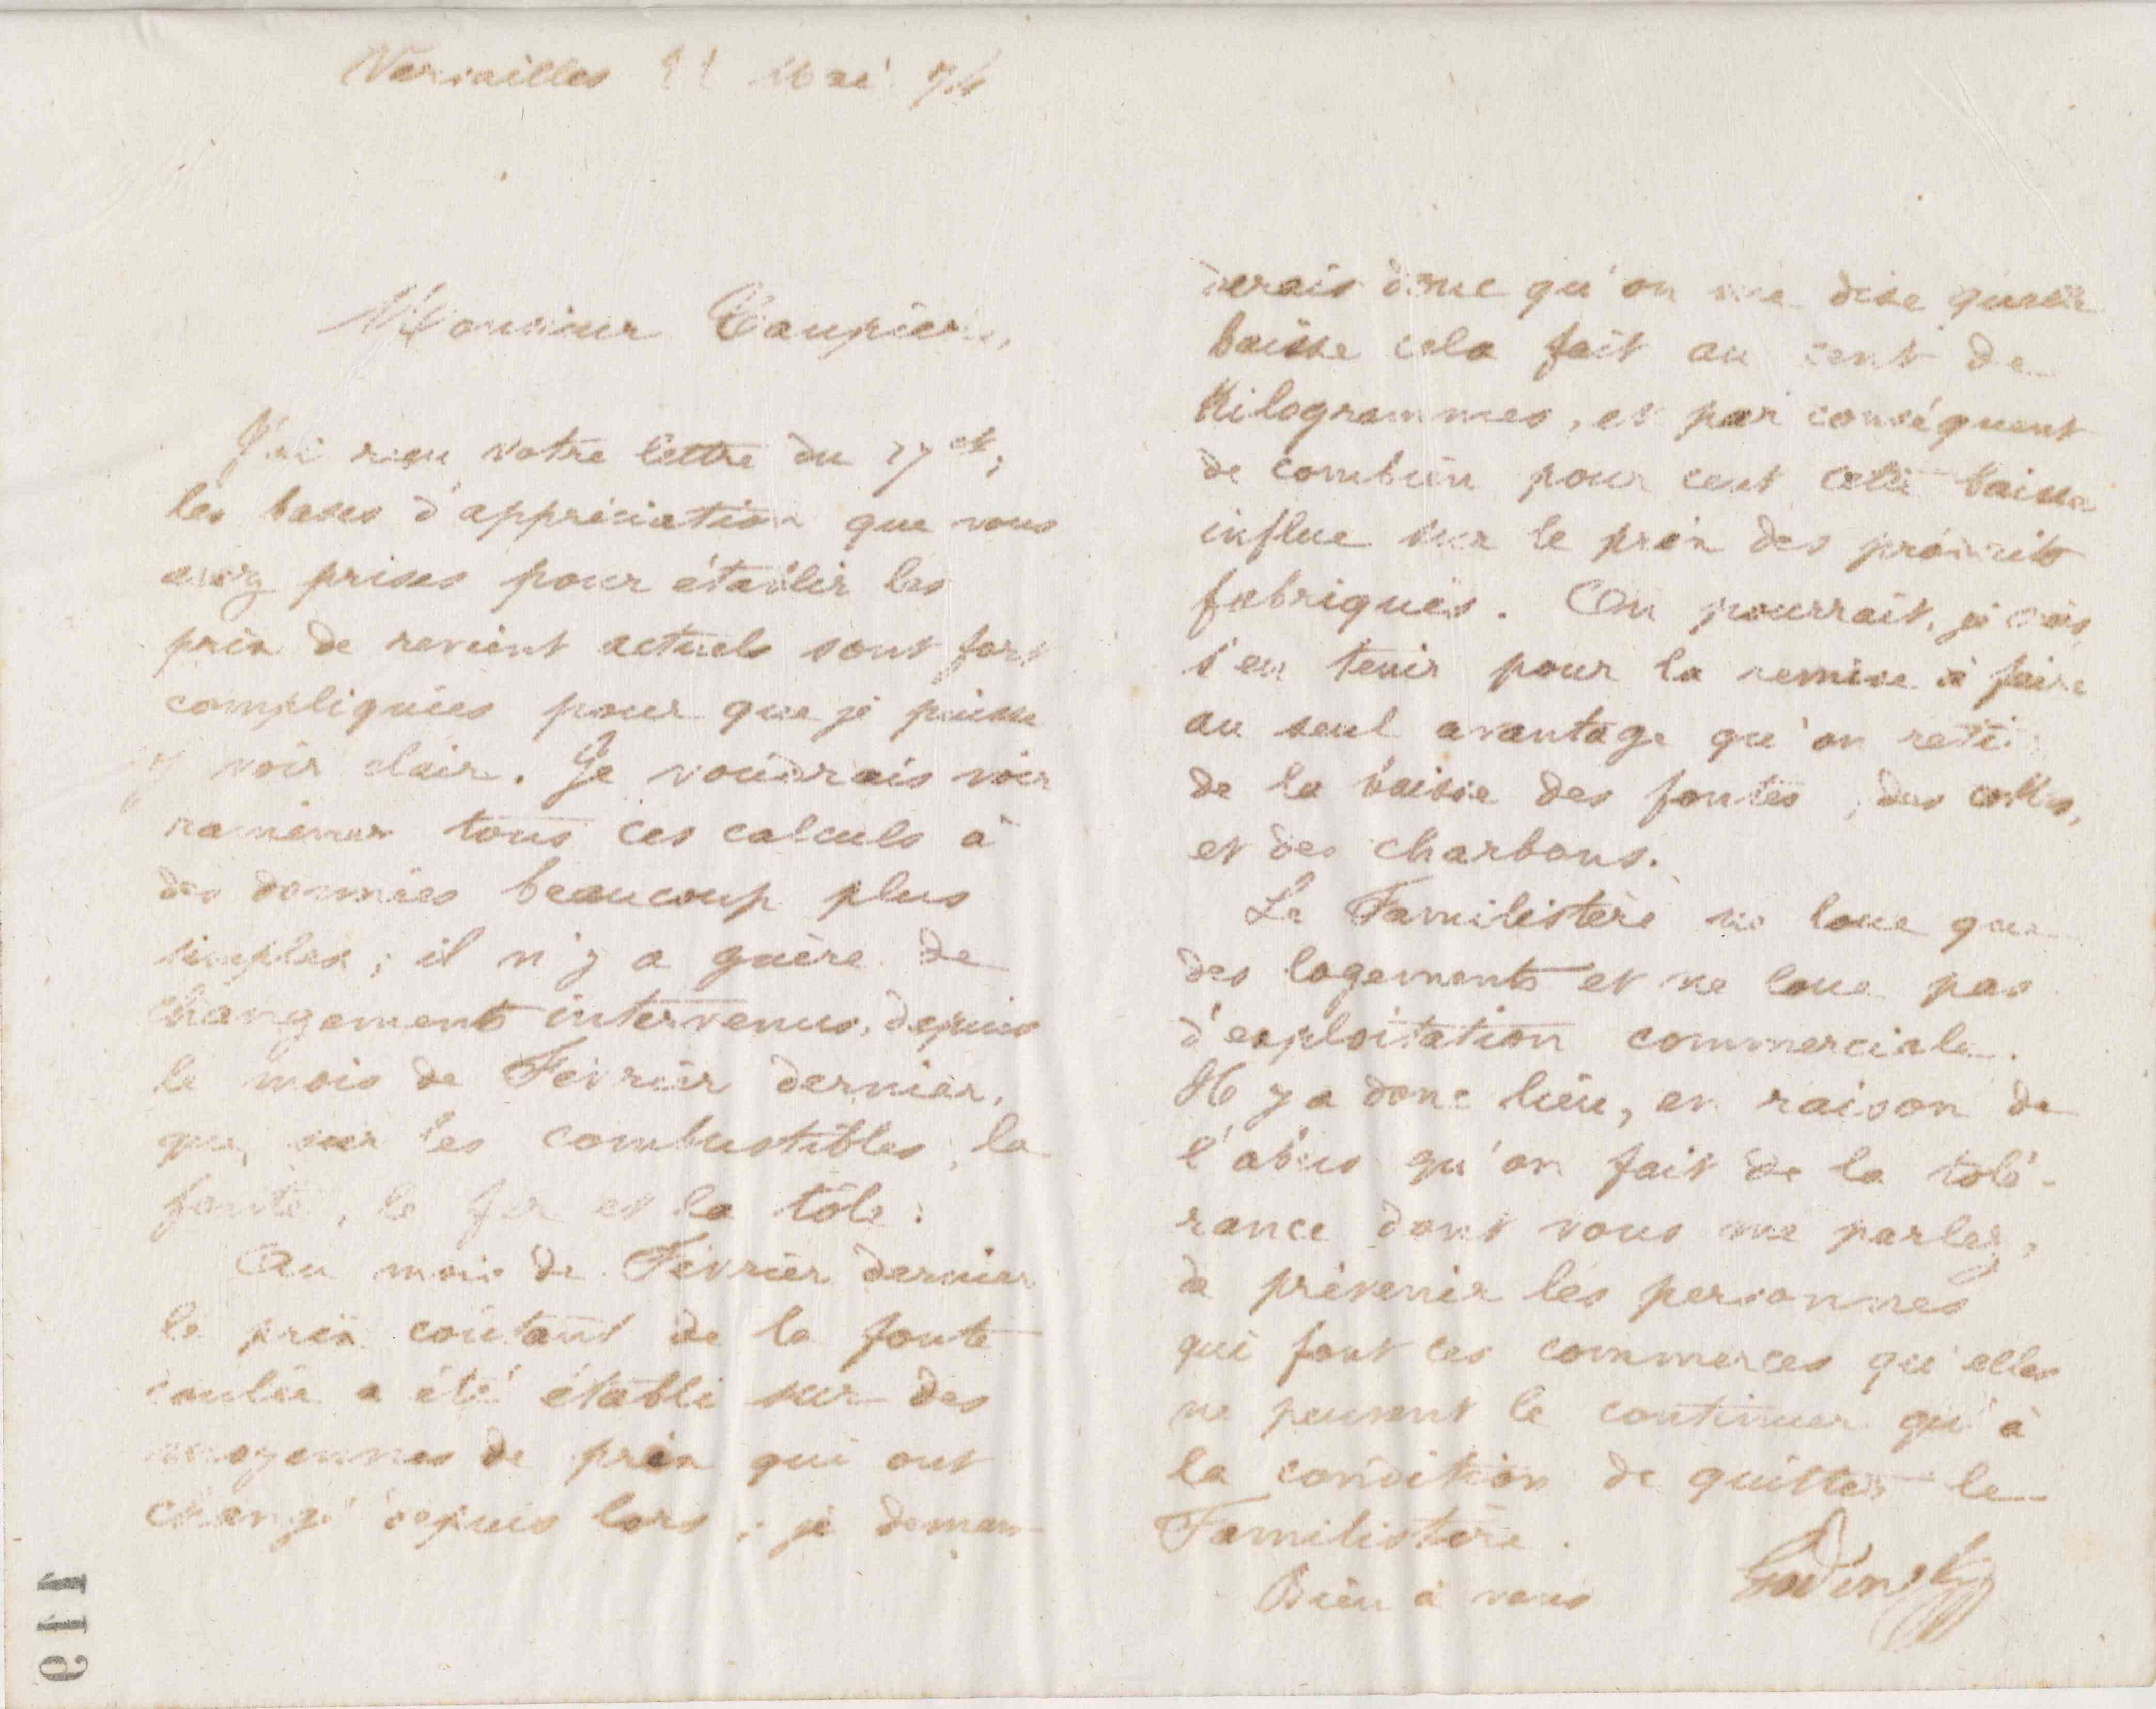 Versailles 22 Mai 74
Monsieur
J'ai reçu votre lettre du 17 ct;
les bases d'appréciation que vous
avez prises pour établir les
prix de revient actuels sont fort
compliquées pour que je puisse
y voir clair. Je voudrais voir
ramener tous ces calculs à
des données beaucoup plus
simples; il n'y a guère de
changements intervenus, depuis
le mois de Février dernier,
que, sur les combustibles, la
fonte, le fer et la tôle.
Au mois de Février dernier
le prix coûtant de la fonte
coulée a été établi sur des
moyennes de prix qui ont
changé depuis lors; je deman
derais donc qu'on me dise quelle
baisse cela fait au cent de
Kilogrammes, et par conséquent
de combien pour cent cette baisse
influe sur le prix des produits
fabriqués. On pourrait, je crois,
s'en tenir pour la remise à faire
au seul avantage qu'on reti
de la baisse des fontes, des cokes,
et des charbons.
Le Familistère ne loue que
des logements et ne loue pas
d'exploitation commerciale.
Il y a donc lieu, en raison de
l'abus qu'on fait de la tolé-
rance dont vous me parlez,
de prévenir les personnes
qui font ces commerces qu'elles
ne peuvent le continuer qu'à
la condition de quitter le
Familistère.
Bien à vous Godin
119